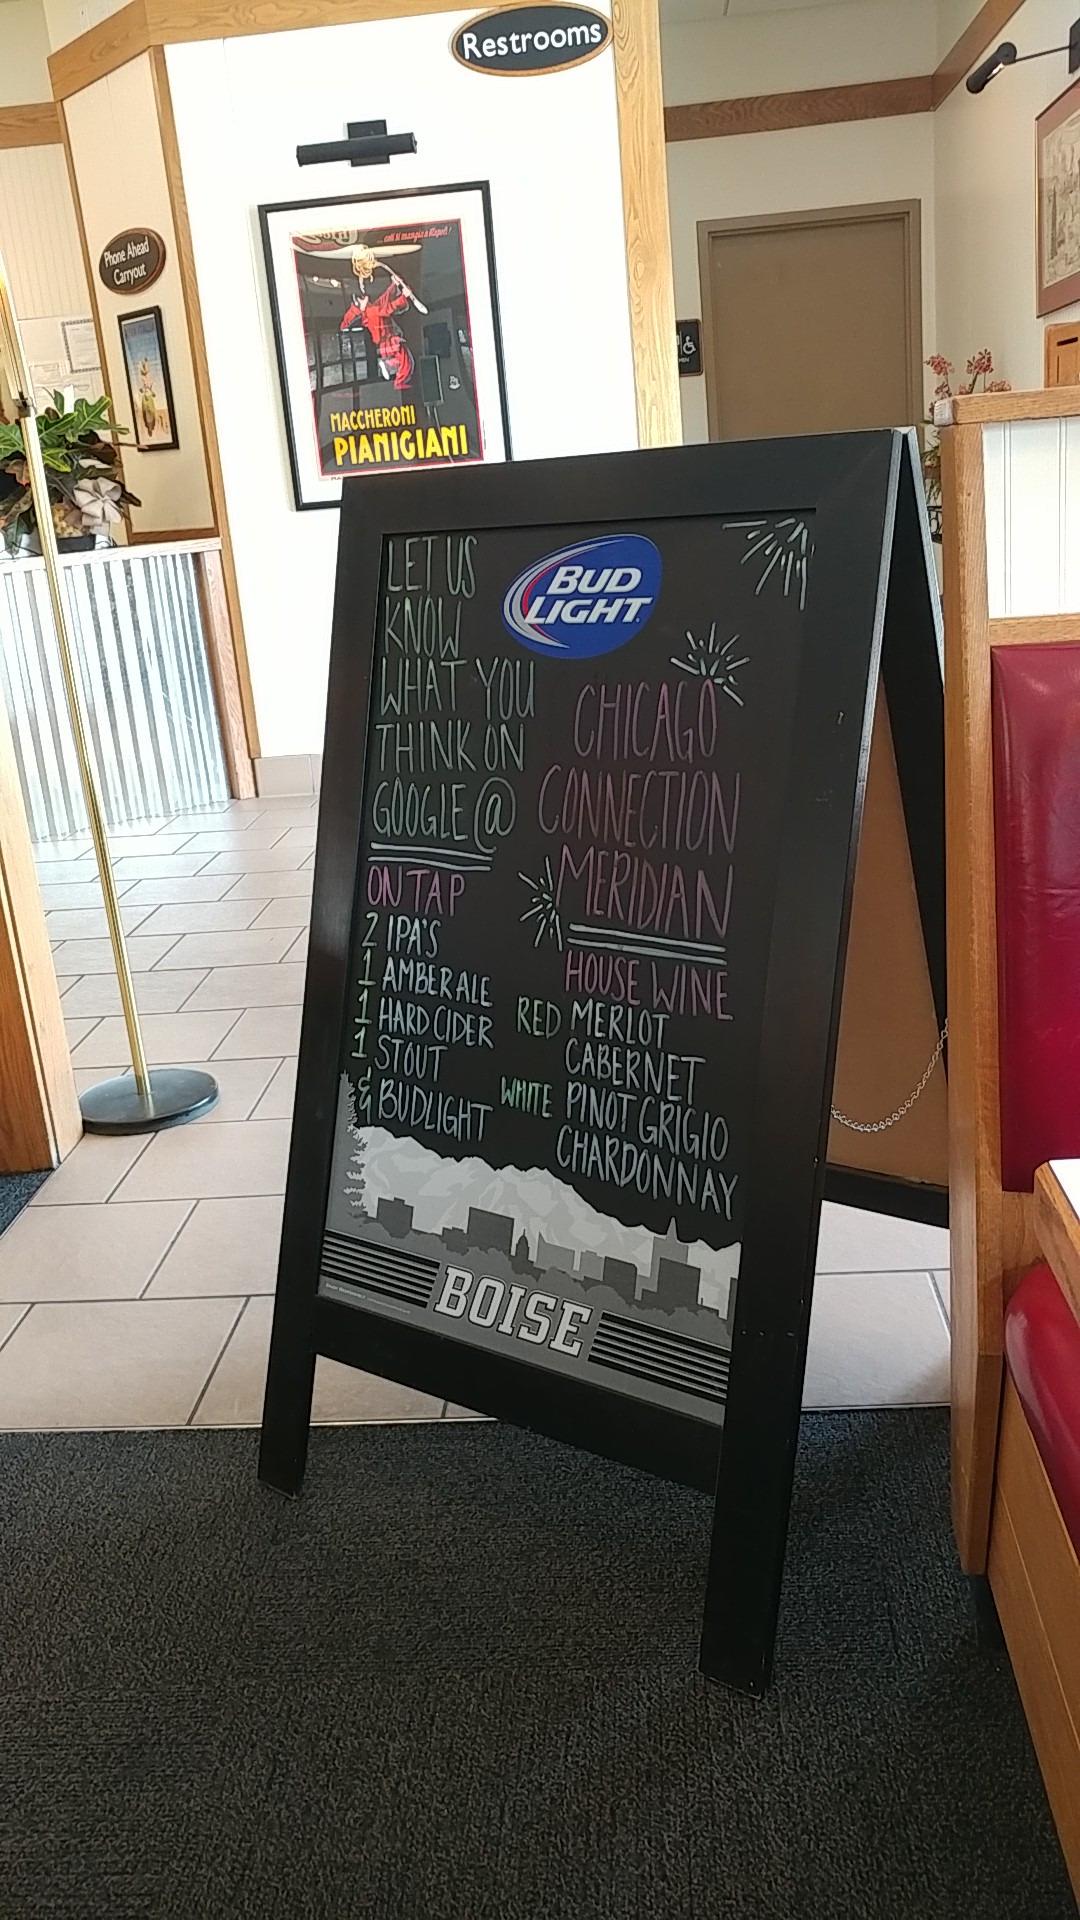 Restrooms
Phone Ahead
Carryout
MACCHERONI
PIANIGIANI
BUD
LIGHT
LET US
KNOW
WHAT YOU
THINK ON
GOOGLE @
CHICAGO
CONNECTION
MERIDIAN
ON TAP
2 IPA'S
1 AMBER ALE
1 HARD CIDER
1 STOUT
& BUDLIGHT
HOUSE WINE
RED MERLOT
CABERNET
WHITE PINOT GRIGIO
CHARDONNAY
BOISE